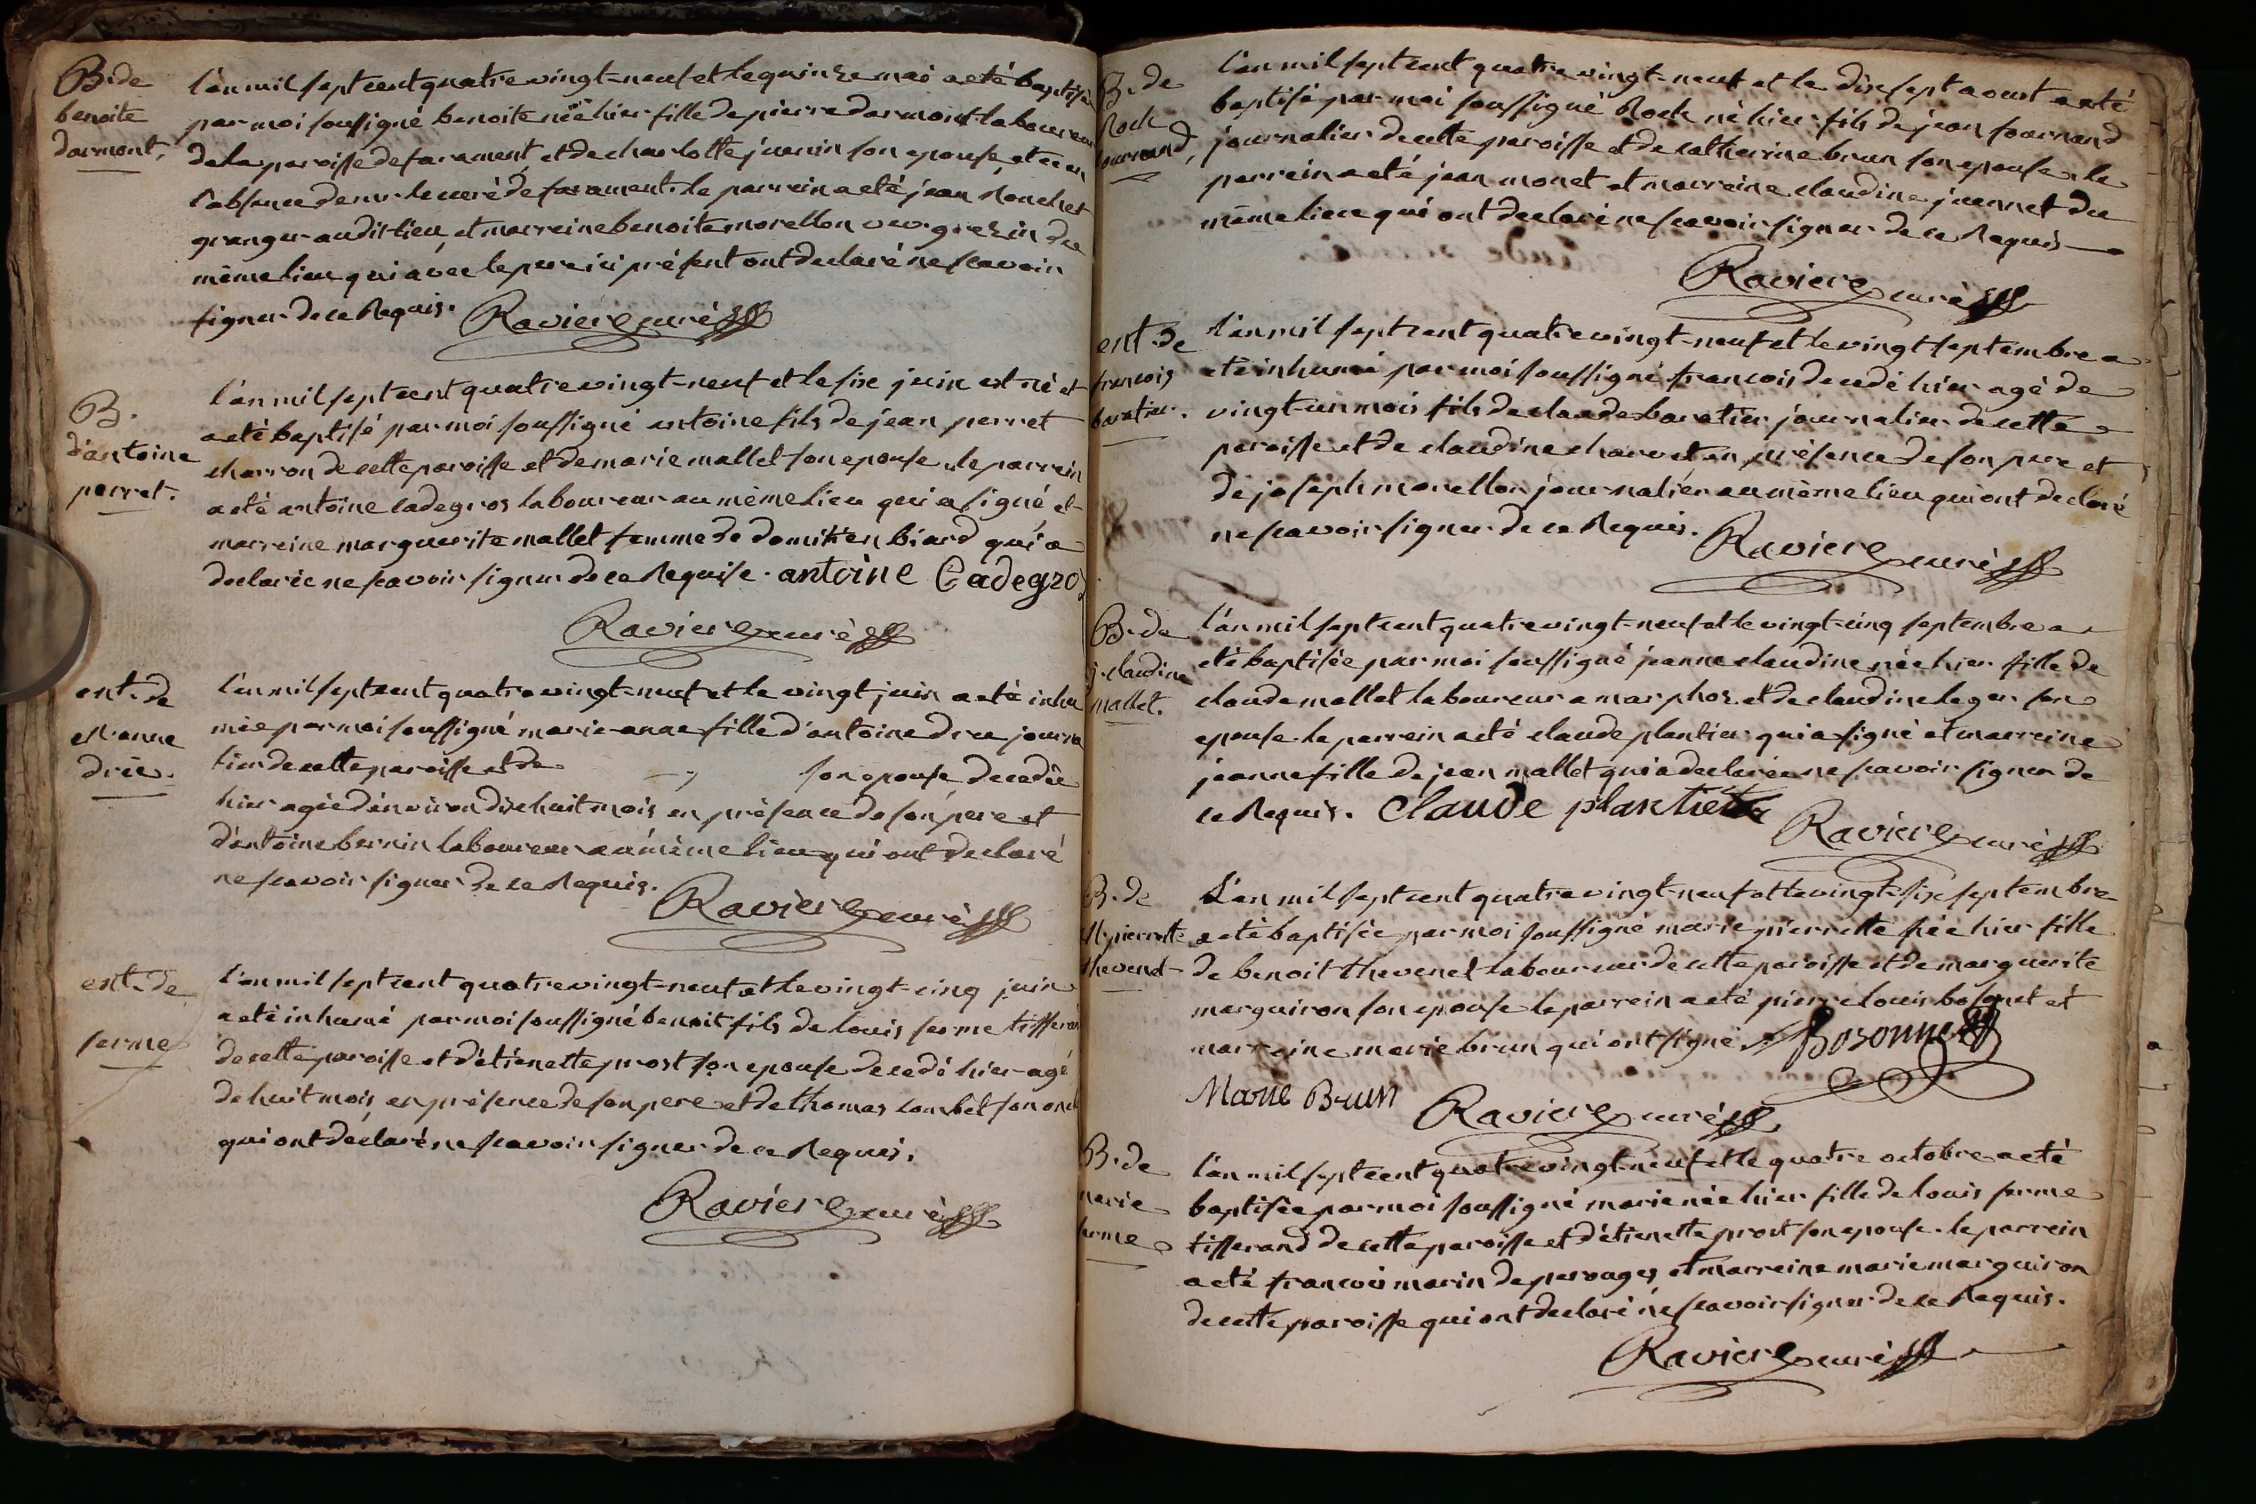 B. de
benoite
darmont,
l'an mil sept cent quatre vingt-neuf et le quinze mai a eté baptisée
par moi soussigné benoite née hier fille de pierre darmont laboureur
de la paroisse de farament et de charlotte juenin son epouse et ce en
l'absence de mr. le curé de farament. le parrein a eté jean
granger audit lieu, et marreine benoite morellon veuve grezin du
même lieu qui avec le pere ici présent ont declaré ne scavoir
signer de ce Requis. Raviere curé
B.
d'antoine
perret.
l'an mil sept cent quatre vingt-neuf et le six juin est né et
a eté baptisé par moi soussigné antoine fils de jean perret
charron de cette paroisse et de marie mallet son epouse. le parrein
a eté antoine cadegros laboureur au même lieu qui a signé et
marreine marguerite mallet femme de domitien biard qui a
declarée ne scavoir signer de ce Requise. antoine Cadegros
Raviere curé
ent. de
M. anne
drie.
l'an mil sept cent quatre vingt-neuf et le vingt juin a eté inhu
mée par moi soussigné marie-anne fille d'antoine journa
lier de cette paroisse et de son epouse decedée
hier agée d'environ dix huit mois en présence de son pere et
d'antoine bernin laboureur au même lieu qui ont declaré
ne scavoir signer de ce Requis.
Raviere curé
ent. de
ferme
l'an mil sept cent quatre vingt-neuf et le vingt-cinq juin
a eté inhumé par moi soussigné benoit fils de louis ferme tisserand
de cette paroisse et d'étienette prost son epouse decedé hier agé
de huit mois, en présence de son pere et de thomas combet son oncle
qui ont declaré ne scavoir signer de ce Requis.
Raviere curé
B. de
Roch
fournand,
l'an mil sept cent quatre vingt-neuf et le dix sept aoust a eté
baptisé par moi soussigné Roch né hier fils de jean fournand
journalier de cette paroisse et de catherine brun son epouse. le
parrein a eté jean monet et marreine claudine juennet du
même lieu qui ont declaré ne scavoir signer de ce Requis
Raviere curé
ent. de
francois
baratier.
l'an mil sept cent quatre vingt-neuf et le vingt septembre a
eté inhumé par moi soussigné francois decedé hier agé de
vingt-un mois fils de claude baratier journalier de cette
paroisse et de claudine charvet en présence de son pere et
de joseph morellon journalier au même lieu qui ont declaré
ne scavoir signer de ce Requis.
Raviere curé
B. de
j. claudine
mallet.
l'an mil sept cent quatre vingt-neuf et le vingt-cinq septembre a
eté baptisée par moi soussigné jeanne claudine née hier fille de
claude mallet laboureur a marphoz et de claudine leger son
epouse. le parrein a eté claude plantier qui a signé et marreine
jeanne fille de jean mallet qui a declarée ne scavoir signer de
ce Requis. Claude plantier
Raviere curé
B. de
M. pierrette
thevenet
L'an mil sept cent quatre vingt-neuf et le vingt-six septembre
a eté baptisée par moi soussigné marie pierrette née hier fille
de benoit thevenet laboureur de cette paroisse et de marguerite
marguiron son epouse le parrein a eté pierre louis bosonet et
marreine marie brun qui ont signé. Bosonnet
Marie Brun
Raviere curé
B. de
marie
ferme
l'an mil sept cent quatre vingt-neuf et le quatre octobre a eté
baptisée par moi soussigné marie née hier fille de louis ferme
tisserand de cette paroisse et d'étienette prost son epouse. le parrein
a eté francois marin de perouges et marreine marie marguiron
de cette paroisse qui ont declaré ne scavoir signer de ce Requis.
Raviere curé